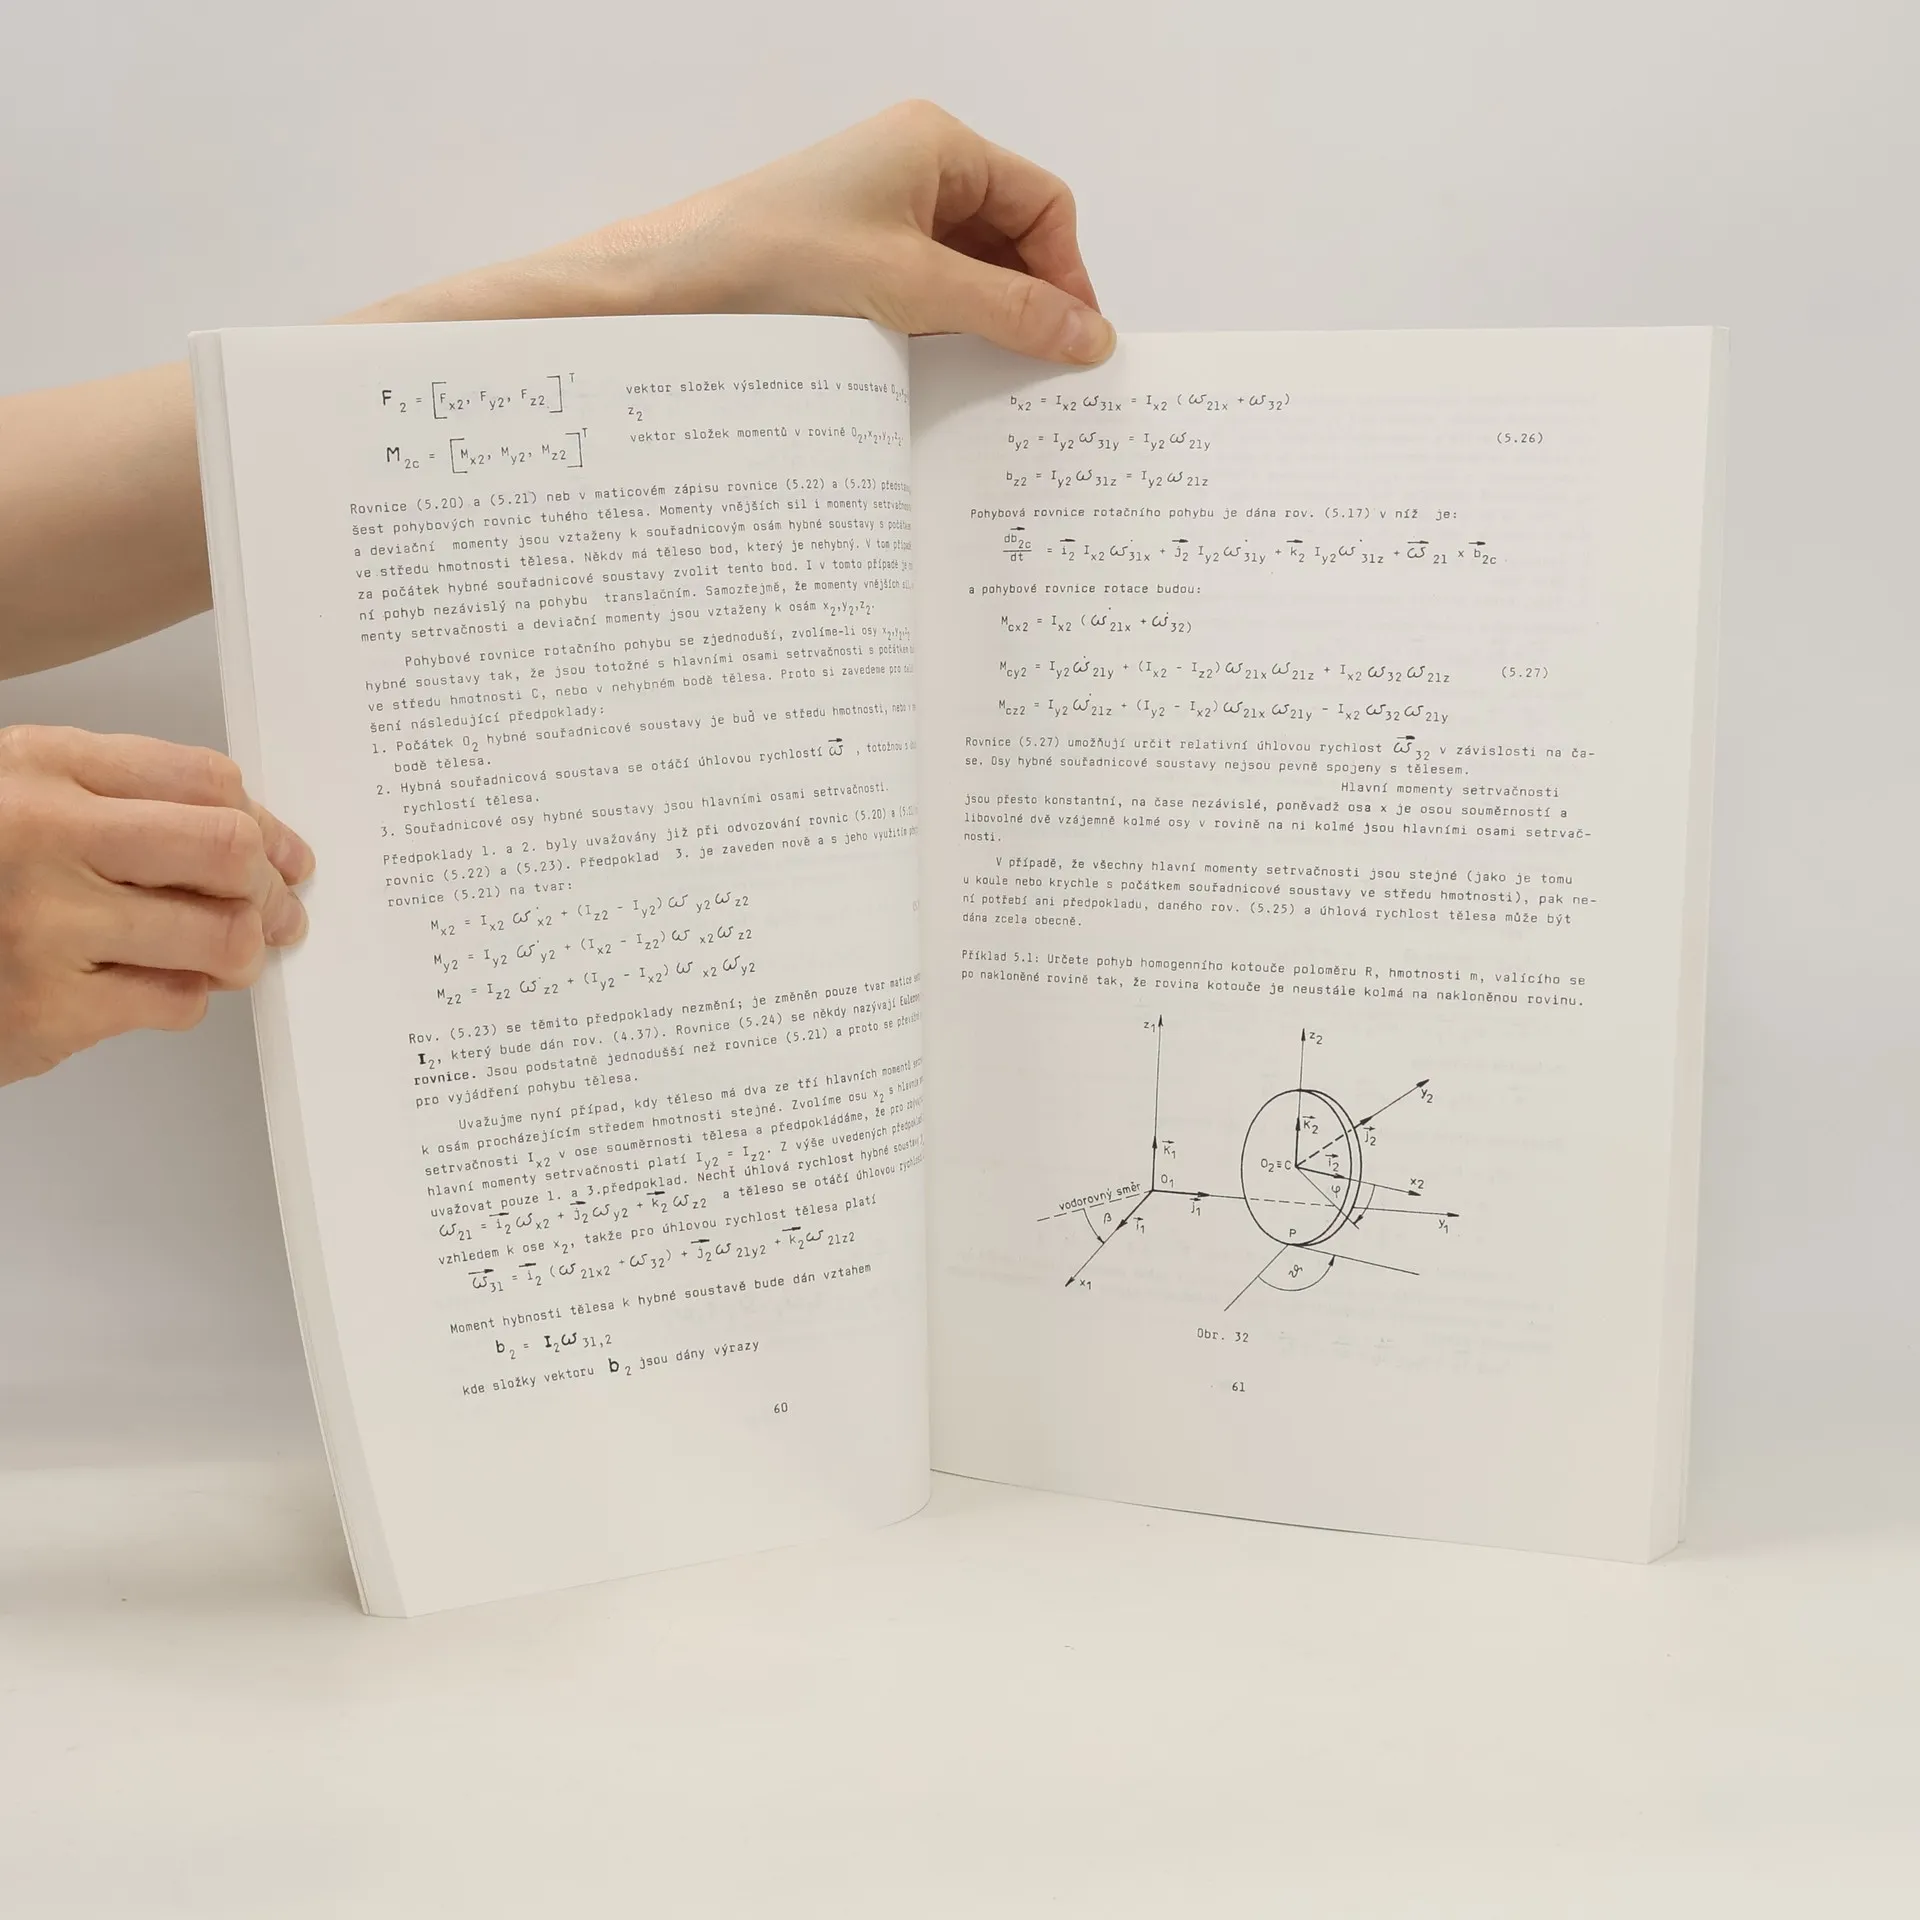 F₂ = [F_x2, F_y2, F_z2]^T vektor složek výslednice sil v soustavě O₂,
z₂
M_2c = [M_x2, M_y2, M_z2]^T vektor složek momentů v rovině O₂,x₂,y₂,z₂.
Rovnice (5.20) a (5.21) neb v maticovém zápisu rovnice (5.22) a (5.23)
šest pohybových rovnic tuhého tělesa. Momenty vnějších sil i momenty
a deviační momenty jsou vztaženy k souřadnicovým osám hybné soustavy s
ve středu hmotnosti tělesa. Někdy má těleso bod, který je nehybný. V tom
za počátek hybné souřadnicové soustavy zvolit tento bod. I v tomto případě je
ní pohyb nezávislý na pohybu translačním. Samozřejmě, že momenty vnějších
menty setrvačnosti a deviační momenty jsou vztaženy k osám x₂,y₂,z₂.
Pohybové rovnice rotačního pohybu se zjednoduší, zvolíme-li osy x₂,y₂,z₂
hybné soustavy tak, že jsou totožné s hlavními osami setrvačnosti s počátkem
ve středu hmotnosti C, nebo v nehybném bodě tělesa. Proto si zavedeme pro
šení následující předpoklady:
1. Počátek O₂ hybné souřadnicové soustavy je buď ve středu hmotnosti, nebo
bodě tělesa.
2. Hybná souřadnicová soustava se otáčí úhlovou rychlostí ω⃗ , totožnou s
rychlostí tělesa.
3. Souřadnicové osy hybné soustavy jsou hlavními osami setrvačnosti.
Předpoklady 1. a 2. byly uvažovány již při odvozování rovnic (5.20) a
rovnic (5.22) a (5.23). Předpoklad 3. je zaveden nově a s jeho využitím
rovnice (5.21) na tvar:
M_x2 = I_x2 ω̇_x2 + (I_z2 - I_y2) ω_y2 ω_z2
M_y2 = I_y2 ω̇_y2 + (I_x2 - I_z2) ω_x2 ω_z2
M_z2 = I_z2 ω̇_z2 + (I_y2 - I_x2) ω_x2 ω_y2
Rov. (5.23) se těmito předpoklady nezmění; je změněn pouze tvar matice
I₂, který bude dán rov. (4.37). Rovnice (5.24) se někdy nazývají
rovnice. Jsou podstatně jednodušší než rovnice (5.21) a proto se
pro vyjádření pohybu tělesa.
Uvažujme nyní případ, kdy těleso má dva ze tří hlavních momentů
k osám procházejícím středem hmotnosti stejné. Zvolíme osu x₂ s
setrvačnosti I_x2 v ose souměrnosti tělesa a předpokládáme, že pro
hlavní momenty setrvačnosti platí I_y2 = I_z2. Z výše uvedených
uvažovat pouze 1. a 3.předpoklad. Nechť úhlová rychlost hybné soustavy
ω₂₁ = i⃗₂ ω_x2 + j⃗₂ ω_y2 + k⃗₂ ω_z2 a těleso se otáčí úhlovou
vzhledem k ose x₂, takže pro úhlovou rychlost tělesa platí
ω⃗₃₁ = i⃗₂ (ω_21x2 + ω₃₂) + j⃗₂ ω_21y2 + k⃗₂ ω_21z2
Moment hybnosti tělesa k hybné soustavě bude dán vztahem
b₂ = I₂ ω_31,2
kde složky vektoru b₂ jsou dány výrazy
60
b_x2 = I_x2 ω_31x = I_x2 (ω_21x + ω₃₂)
b_y2 = I_y2 ω_31y = I_y2 ω_21y (5.26)
b_z2 = I_y2 ω_31z = I_y2 ω_21z
Pohybová rovnice rotačního pohybu je dána rov. (5.17) v níž je:
db⃗_2c/dt = i⃗₂ I_x2 ω̇_31x + j⃗₂ I_y2 ω̇_31y + k⃗₂ I_y2 ω̇_31z + ω⃗₂₁ x b⃗_2c .
a pohybové rovnice rotace budou:
M_cx2 = I_x2 (ω̇_21x + ω̇₃₂)
M_cy2 = I_y2 ω̇_21y + (I_x2 - I_z2) ω_21x ω_21z + I_x2 ω₃₂ ω_21z (5.27)
M_cz2 = I_y2 ω̇_21z + (I_y2 - I_x2) ω_21x ω_21y - I_x2 ω₃₂ ω_21y
Rovnice (5.27) umožňují určit relativní úhlovou rychlost ω⃗₃₂ v závislosti na ča-
se. Osy hybné souřadnicové soustavy nejsou pevně spojeny s tělesem.
Hlavní momenty setrvačnosti
jsou přesto konstantní, na čase nezávislé, poněvadž osa x je osou souměrností a
libovolné dvě vzájemně kolmé osy v rovině na ni kolmé jsou hlavními osami setrvač-
nosti.
V případě, že všechny hlavní momenty setrvačnosti jsou stejné (jako je tomu
u koule nebo krychle s počátkem souřadnicové soustavy ve středu hmotnosti), pak ne-
ní potřebí ani předpokladu, daného rov. (5.25) a úhlová rychlost tělesa může být
dána zcela obecně.
Příklad 5.1: Určete pohyb homogenního kotouče poloměru R, hmotnosti m, valícího se
po nakloněné rovině tak, že rovina kotouče je neustále kolmá na nakloněnou rovinu.
z₁
z₂
y₂
k⃗₂
j⃗₂
k⃗₁
O₂≡C
i⃗₂
x₂
φ
O₁
vodorovný směr
j⃗₁
y₁
β
i⃗₁
P
ϑ
x₁
Obr. 32
61